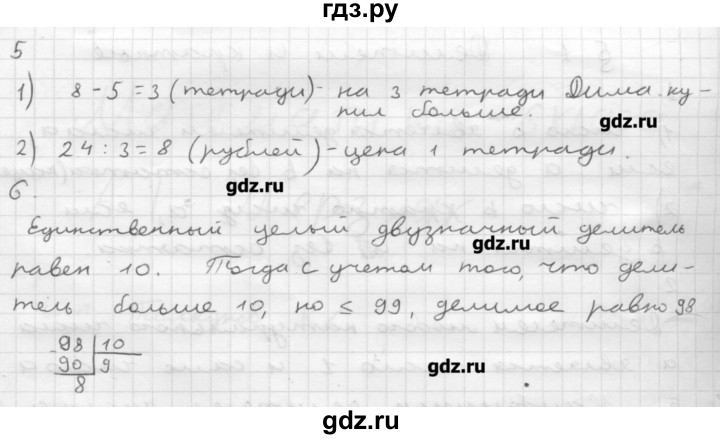 гдз.ру
5
1) 8 - 5 = 3 (тетради) - на 3 тетради Дима ку-
пил больше.
gdz.ru
2) 24 : 3 = 8 (рублей) - цена 1 тетради.
gdz.ru
6.
Единственный целый двузначный делитель
gdz.ru
равен 10. Тогда с учетом того, что дели-
тель больше 10, но ≤ 99, делимое равно 98
98 10
- 90 9
8
gdz.ru
gdz.ru